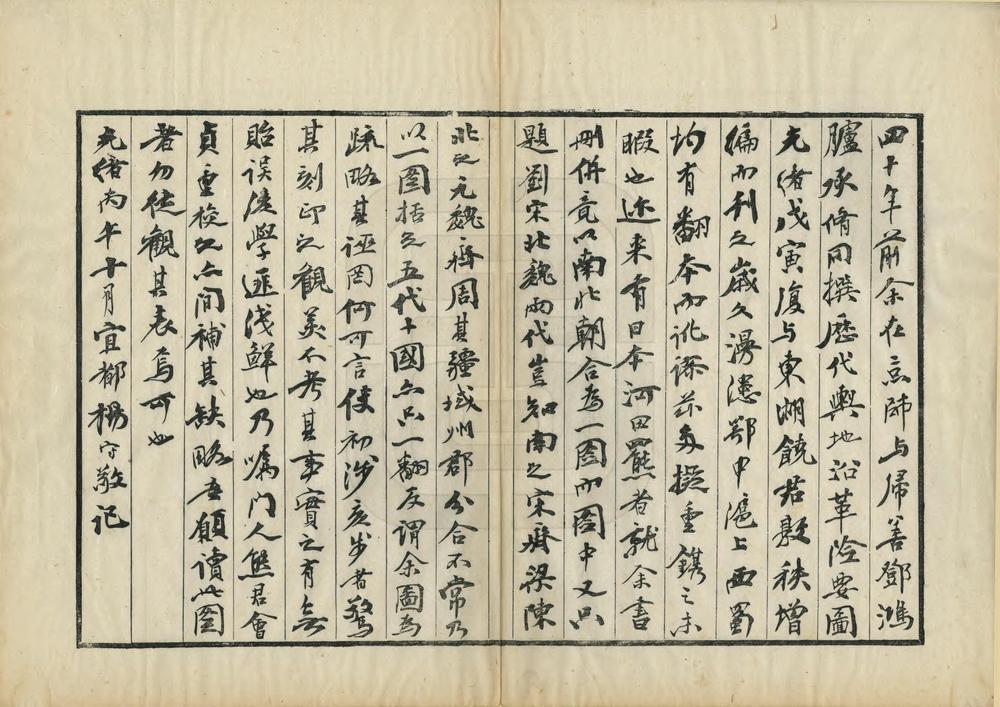 四十年前余在京師与歸善鄧鴻
臚承脩同撰歷代輿地沿革險要圖
光緒戊寅復与東湖饒君敦秩增
編而刊之歲久漫漶鄂中滬上西蜀
均有翻本而訛謬茲多擬重鐫之未
暇也近来有日本河田羆者就余書
刪併竟以南北朝合為一圖而圖中又只
題劉宋北魏兩代豈知南之宋齊梁陳
北之元魏齊周其疆域州郡分合不常乃
以一圖括之五代十國亦只一翻反謂余圖為
疏略其誣罔何可言使初涉亥步者驚
其刻印之觀美不考其事實之有無
貽誤後學匪淺鮮也乃囑門人熊君會
貞重校之亦間補其缺略吾願讀此圖
者勿徒觀其表焉可也
光緒丙午十月宜都楊守敬記